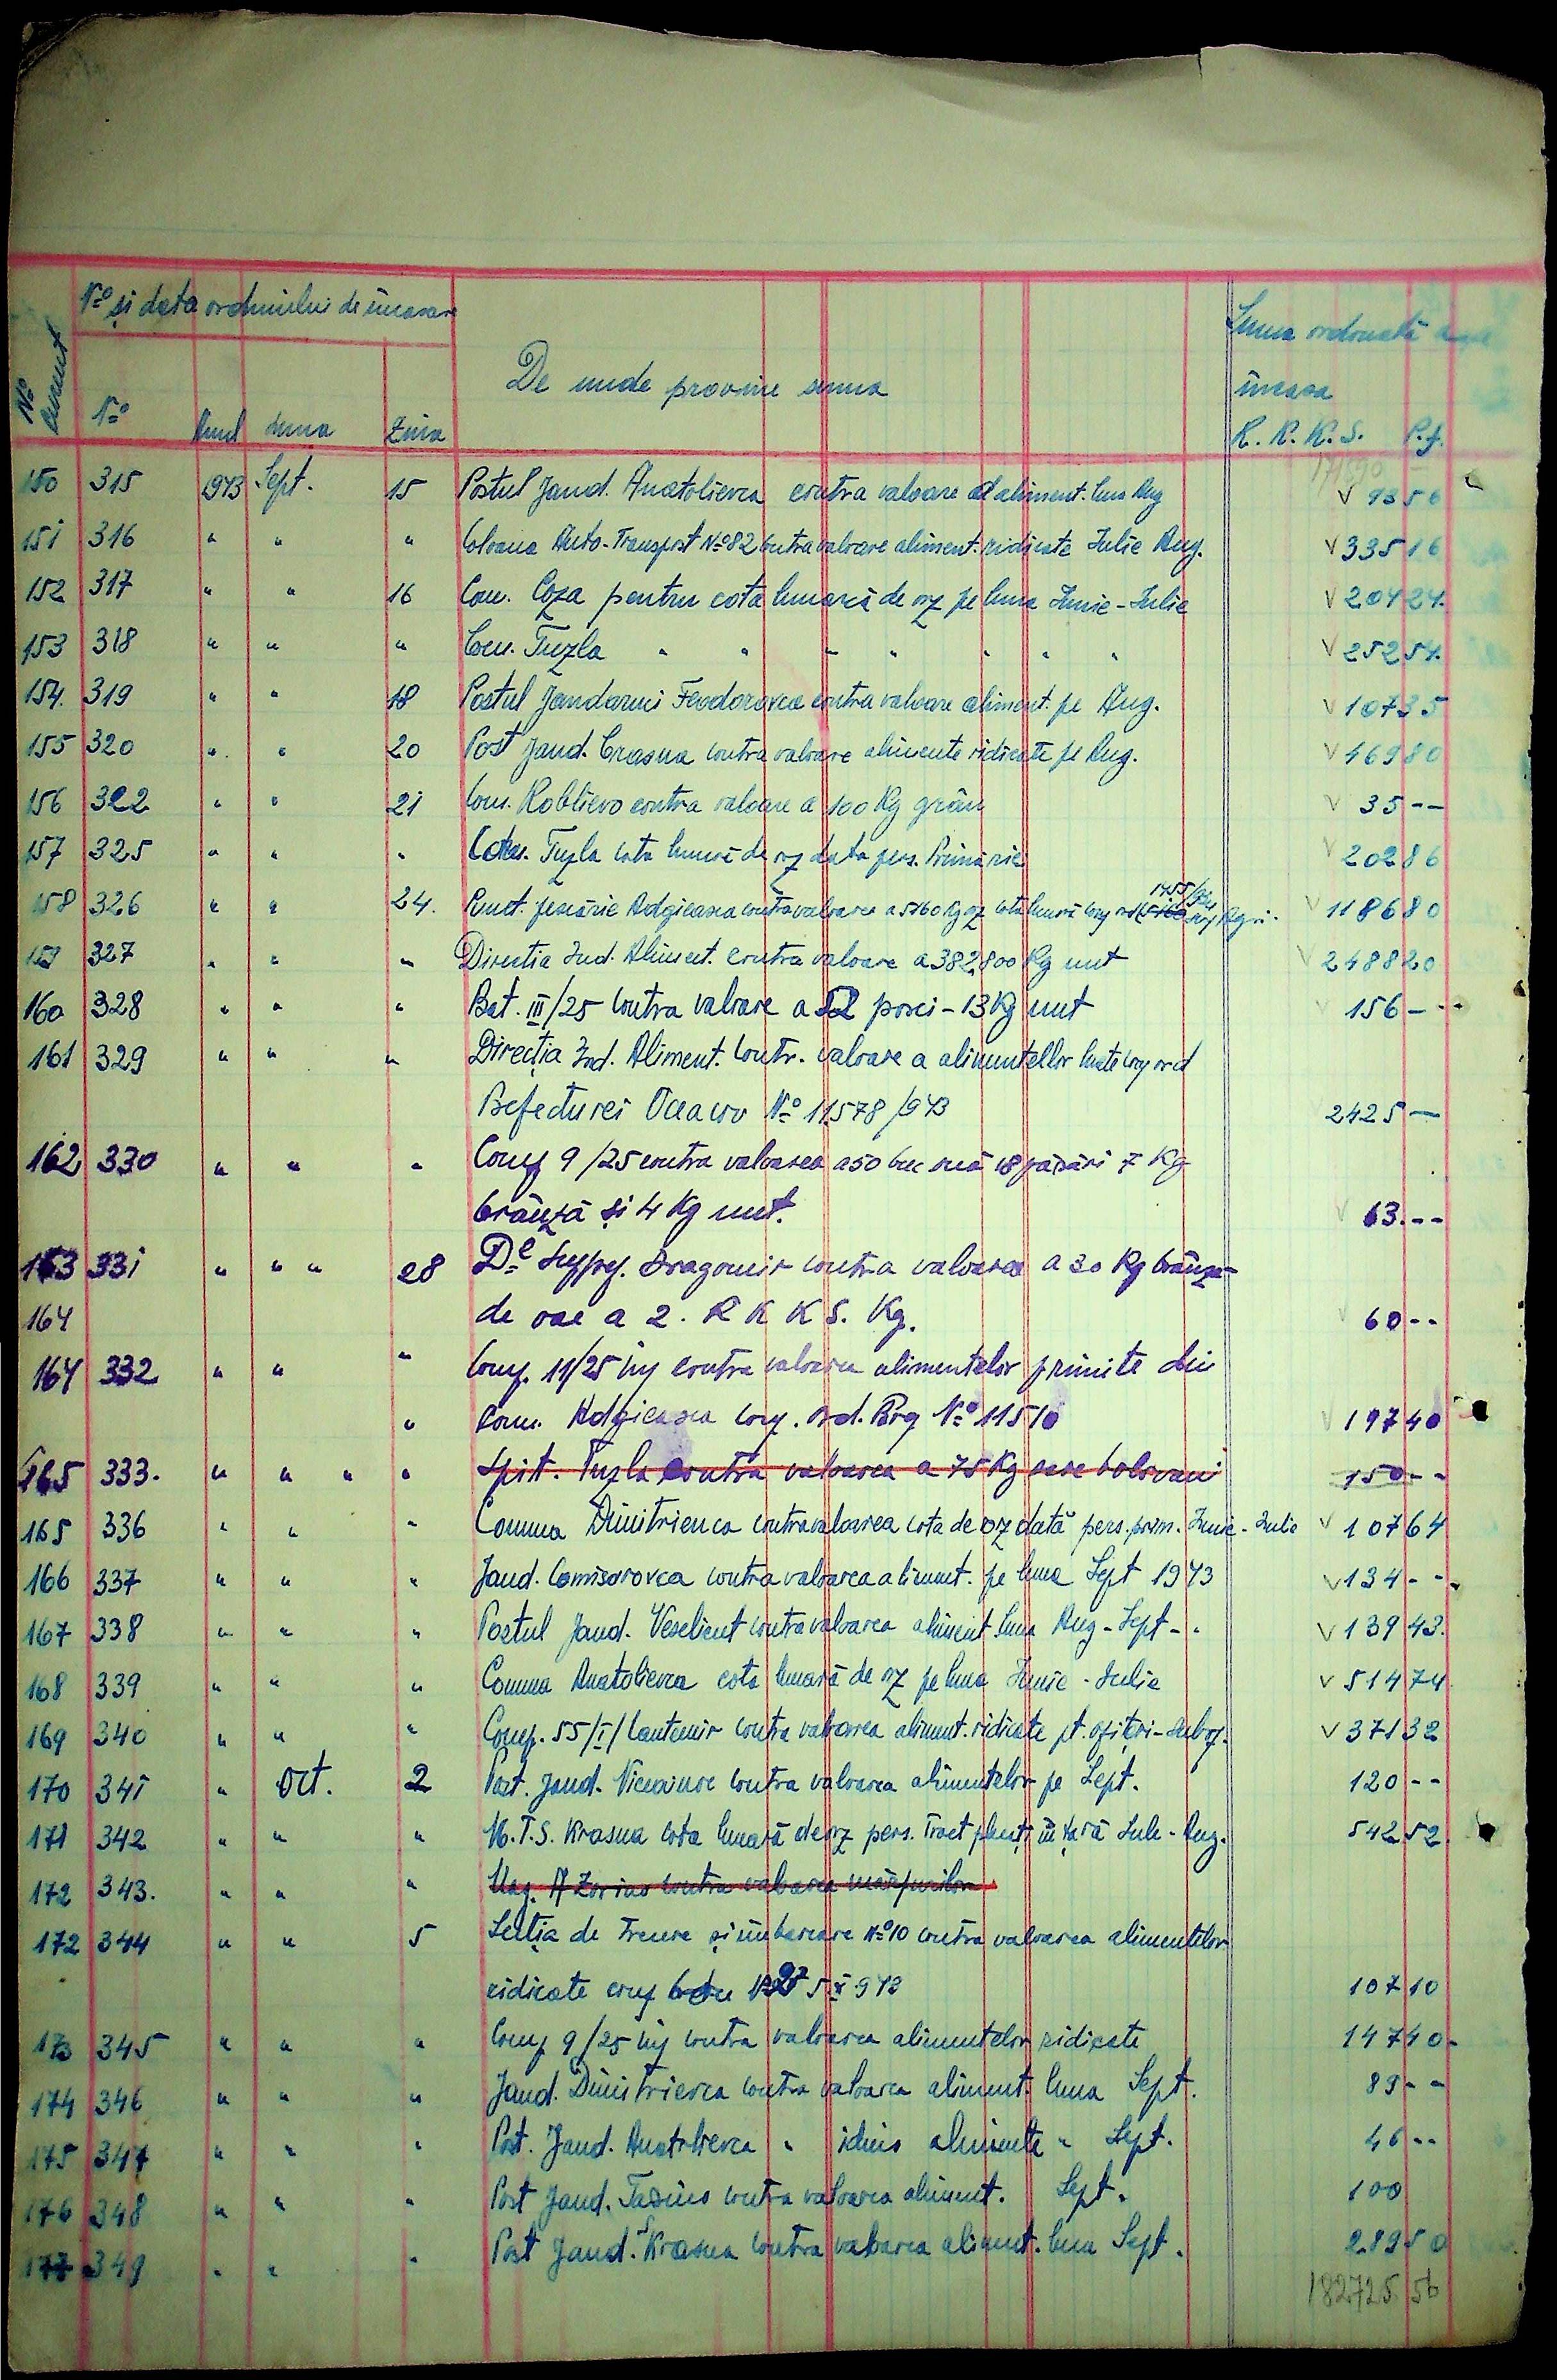 Nº și data ordinului de încasare
Nº curent
Nº Anul Luna Ziua
De unde provine suma
Suma ordonată
încasa
R. K. K. S. P.f.
150 315 1943 Sept. 15 Postul Jand. Anatolievca contra valoare aliment. luna Aug V 93 56
151 316 " " " Coloana Auto-Transport Nº 82 contra valoare aliment. ridicate Iulie Aug. V 335 16
152 317 " " 16 Com. Coza pentru cota lunară de orz pe luna Iunie-Iulie V 204 24.
153 318 " " " Com. Tuzla " " " " " " " V 252 54.
154. 319 " " 18 Postul Jandarmi Feodorovca contra valoare aliment. pe Aug. V 107 35
155 320 " " 20 Post Jand. Crasna contra valoare alimente ridicate pe Aug. V 469 80
156 322 " " 21 Com. Koblievo contra valoare a 100 Kg grâu V 35 --
157 325 " " " Com. Tuzla cota lunară de orz data pers. Primăriei V 202 86
158 326 " " 24. Punct. pescărie Adgieasca contravaloarea a 5760 Kg orz cota lunară V 1186 80
159 327 " " " Directia Ind. Aliment. contra valoare a 382,800 Kg unt V 2488 20
160 328 " " " Bat. III/25 contra valoare a 52 porci - 13 Kg unt 156 --
161 329 " " " Direcția Ind. Aliment. contr. valoare a alimentelor luate conf ord
Prefecturei Oceacov Nº 11578/943 2425 --
162 330 " " " Comp 9/25 contra valoarea a 50 buc ouă 18 păsări 7 Kg
brânză și 4 Kg unt. V 63. --
163 331 " " " 28 Dl Subpref. Dragomir contra valoarea a 30 Kg brânză
164 de oae a 2. R K K S. Kg. 60 --
164 332 " " " Comp. 11/25 inf contra valoarea alimentelor primite din
" Com. Adgieasca conf. ord. Prg Nº 11510 V 197 40
165 333. " " " " Spit. Tuzla contra valoarea a 75 Kg sare bolovani 150 --
165 336 " " " Comuna Dimitrievca contravaloarea cota de orz dată pers. prim. Iunie - Iulie V 107 64
166 337 " " " Jand. Comisarovca contra valoarea aliment. pe luna Sept 1943 V 134 --
167 338 " " " Postul Jand. Veselient contra valoarea aliment luna Aug - Sept - " V 139 43.
168 339 " " " Comuna Anatolievca cota lunară de orz pe luna Iunie - Iulie V 514 74
169 340 " " " Comp. 55/I/ Cantemir contra valoarea aliment. ridicate pt. ofițeri-Subof. V 371 32
170 341 " Oct. 2 Post. Jand. contra valoarea alimentelor pe Sept. 120 --
171 342 " " " M.T.S. Krasna cota lunară de orz pers. Tract în țară Iulie - Aug. 542 52.
172 343. " " " contra valoarea
172 344 " " 5 Secția de Trecere și îmbarcare Nº 10 contra valoarea alimentelor
ridicate conf 5 X 943 107 10
173 345 " " " Comp 9/25 inf contra valoarea alimentelor ridicate 147 40.
174 346 " " " Jand. Dimitrievca contra valoarea aliment. luna Sept. 89 --
175 347 " " " Post. Jand. Anatolievca " idem alimente " Sept. 46 --
176 348 " " " Post Jand. Tașino contra valoarea aliment. Sept. 100
177 349 " " " Post Jand. Krasna contra valoarea aliment. luna Sept. 289 50
182725 56